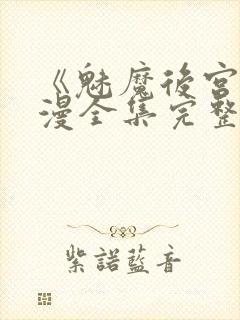 《魅魔後宮
漫全集完整
紫諾藍音